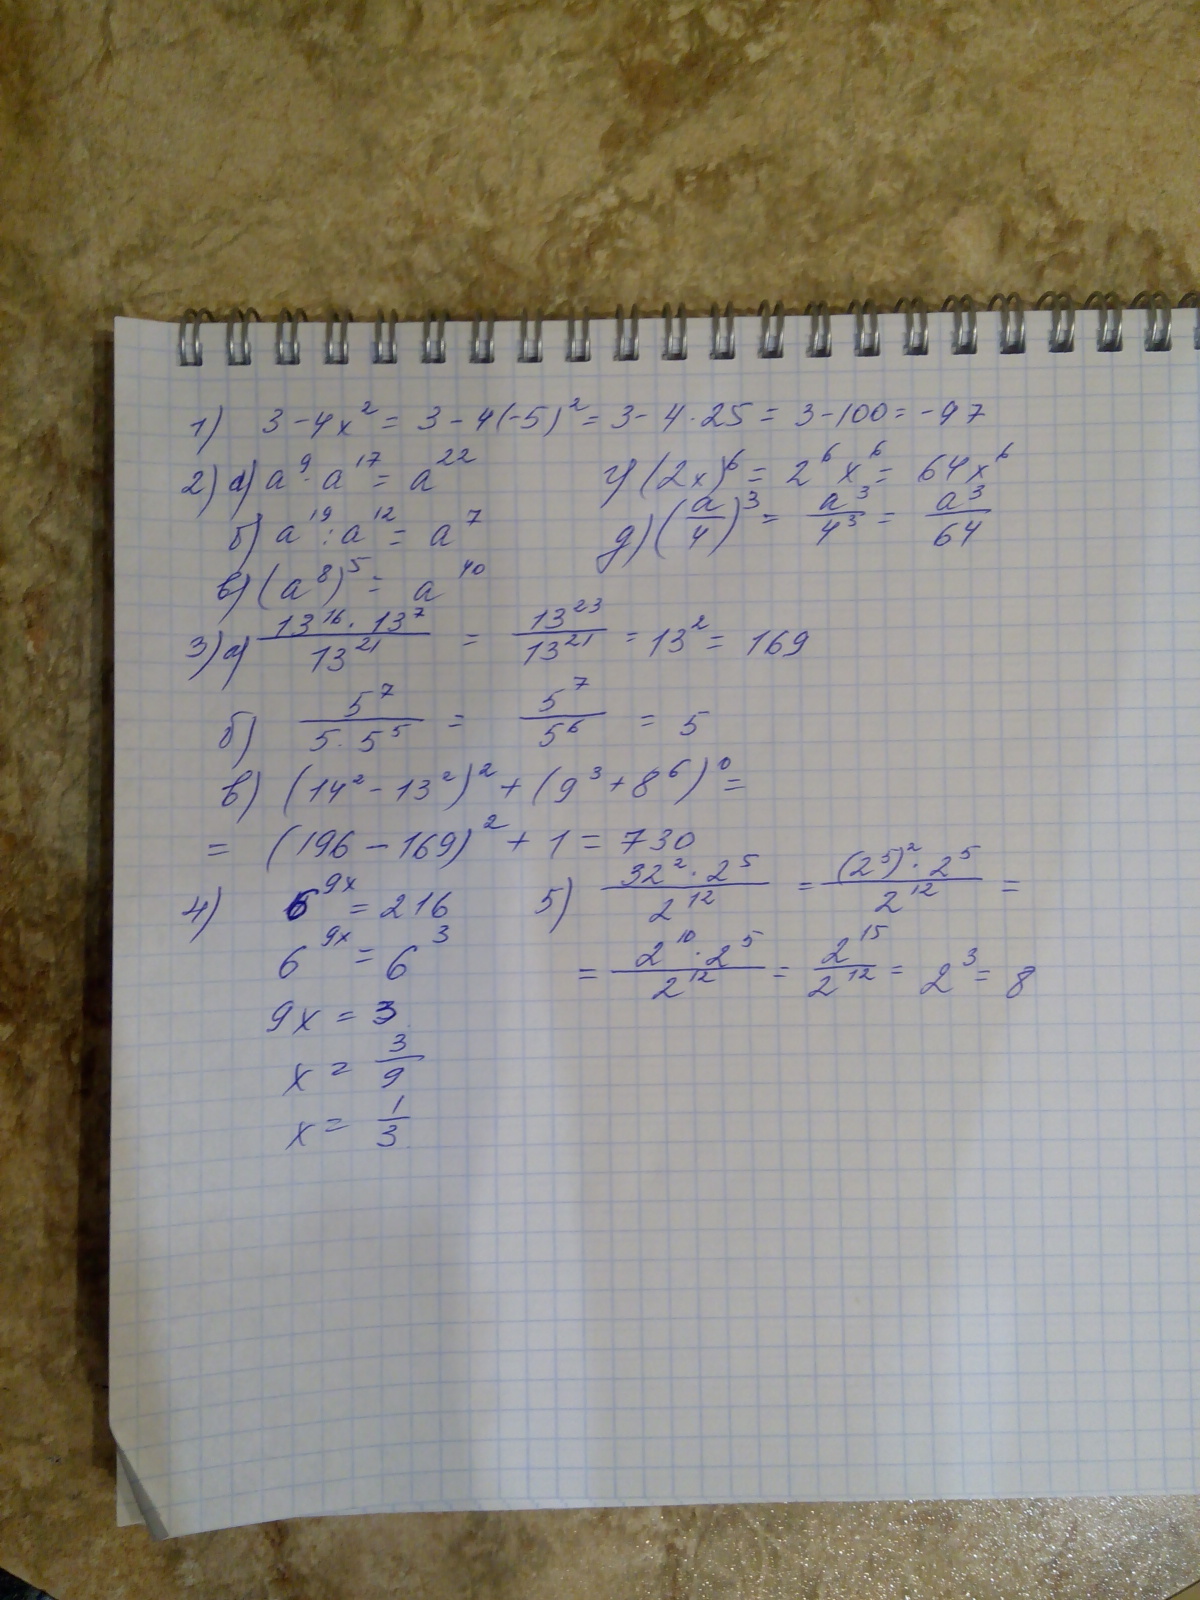 1) 3 - 4x² = 3 - 4(-5)² = 3 - 4 · 25 = 3 - 100 = -97
2) а) a⁹ · a¹⁷ = a²²
б) a¹⁹ : a¹² = a⁷
в) (a⁸)⁵ = a⁴⁰
г) (2x)⁶ = 2⁶x⁶ = 64x⁶
д) (a/4)³ = a³/4³ = a³/64
3) а) (13¹⁶ · 13⁷)/13²¹ = 13²³/13²¹ = 13² = 169
б) 5⁷/(5 · 5⁵) = 5⁷/5⁶ = 5
в) (14² - 13²)² + (9³ + 8⁶)⁰ =
= (196 - 169)² + 1 = 730
4) 6⁹ˣ = 216
6⁹ˣ = 6³
9x = 3
x = 3/9
x = 1/3
5) (32² · 2⁵)/2¹² = ((2⁵)² · 2⁵)/2¹² =
= (2¹⁰ · 2⁵)/2¹² = 2¹⁵/2¹² = 2³ = 8